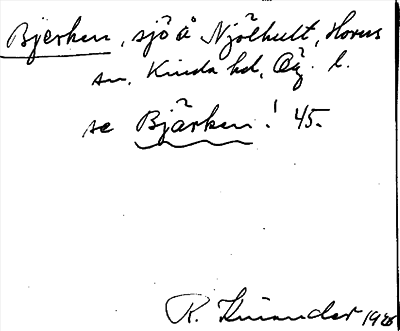 Bjerken, sjö å Njölhult, Horns
sn, Kinda hd, Ög. l.
se Bjärken! 45.
R. Kinander 1926